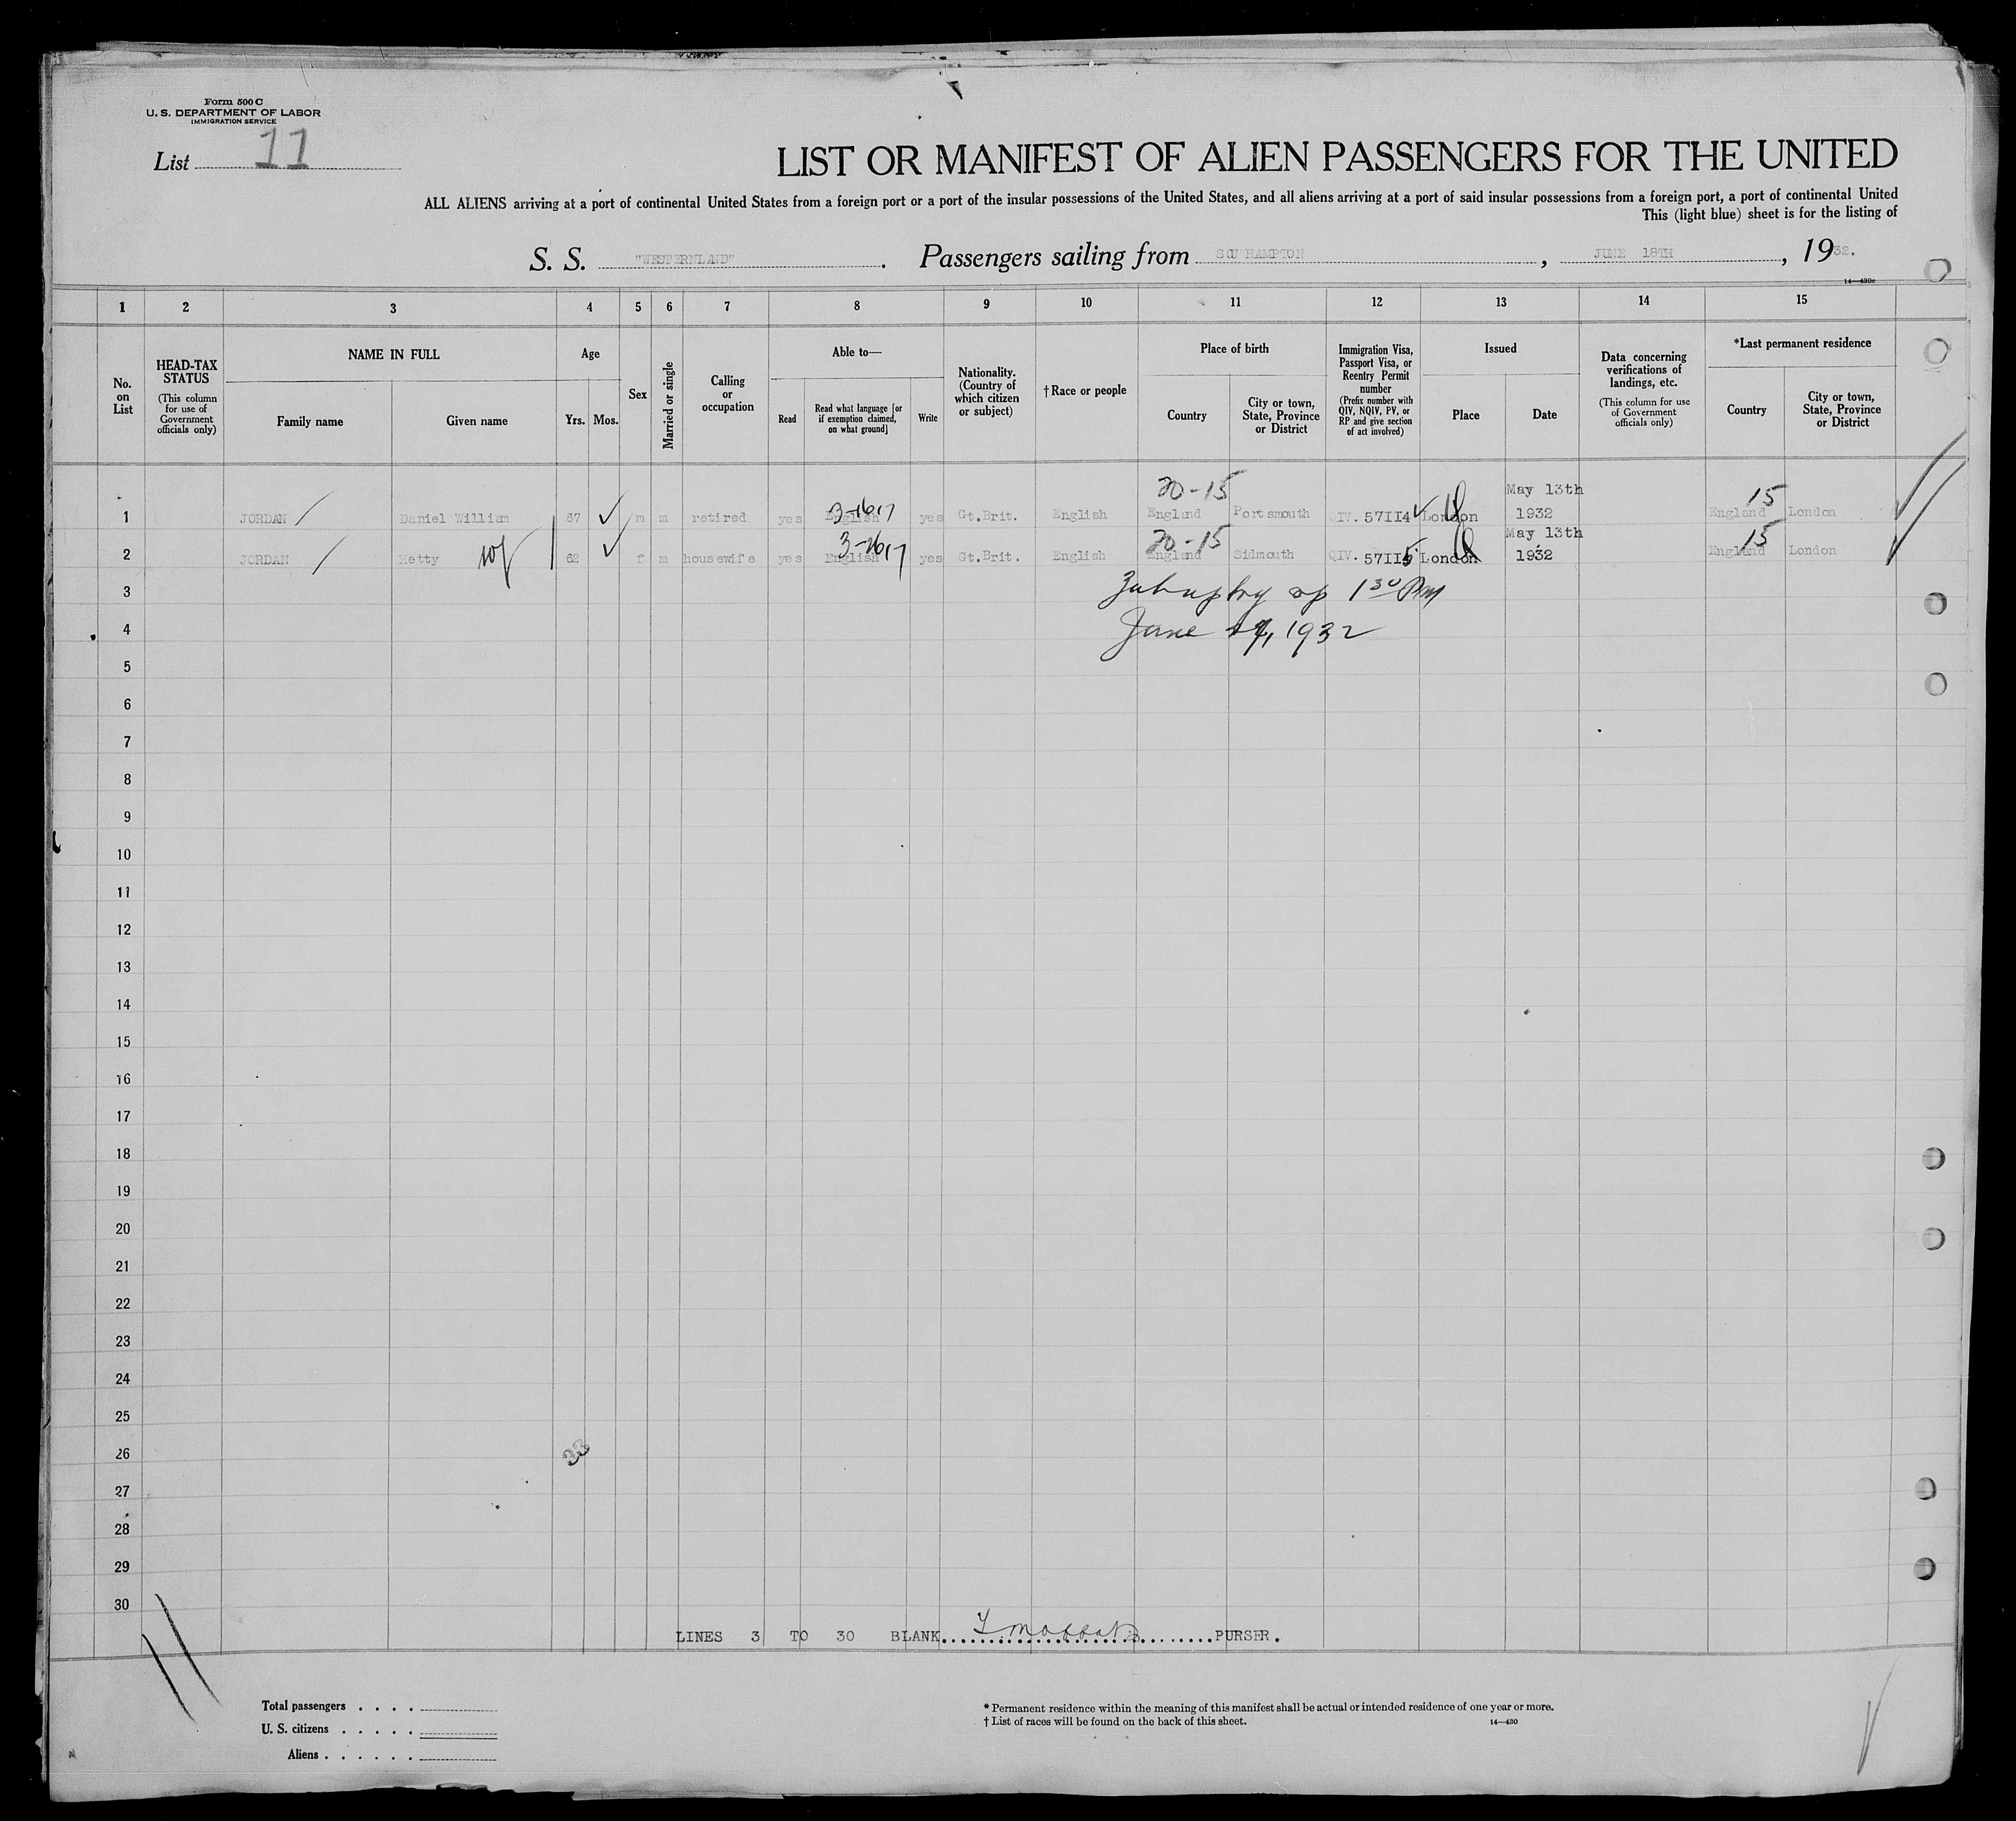 Form 500 C
U. S. DEPARTMENT OF LABOR
IMMIGRATION SERVICE
List 11
LIST OR MANIFEST OF ALIEN PASSENGERS FOR THE UNITED
ALL ALIENS arriving at a port of continental United States from a foreign port or a port of the insular possessions of the United States, and all aliens arriving at a port of said insular possessions from a foreign port, a port of continental United
This (light blue) sheet is for the listing of
S. S. "WESTERNLAND". Passengers sailing from SOUTHAMPTON, JUNE 18TH, 1932.
14—430c
1 2 3 4 5 6 7 8 9 10 11 12 13 14 15
No. on List
HEAD-TAX STATUS (This column for use of Government officials only)
NAME IN FULL
Family name
Given name
Age
Yrs. Mos.
Sex
Married or single
Calling or occupation
Able to—
Read
Read what language [or if exemption claimed, on what ground]
Write
Nationality. (Country of which citizen or subject)
†Race or people
Place of birth
Country
City or town, State, Province or District
Immigration Visa, Passport Visa, or Reentry Permit number (Prefix number with QIV, NQIV, PV, or RP and give section of act involved)
Issued
Place
Date
Data concerning verifications of landings, etc. (This column for use of Government officials only)
*Last permanent residence
Country
City or town, State, Province or District
20-15 May 13th 15
1 JORDAN Daniel William 67 m m retired yes English yes Gt.Brit. English England Portsmouth QIV. 57114 London 1932 England London
20-15 May 13th 15
2 JORDAN Hetty wf 62 f m housewife yes English yes Gt.Brit. English England Sidmouth QIV. 57115 London 1932 England London
3 1 30 PM
4 June 1932
5
6
7
8
9
10
11
12
13
14
15
16
17
18
19
20
21
22
23
24
25
26 33
27
28
29
30
LINES 3 TO 30 BLANK PURSER.
Total passengers
U. S. citizens
Aliens
* Permanent residence within the meaning of this manifest shall be actual or intended residence of one year or more.
† List of races will be found on the back of this sheet.
14—430